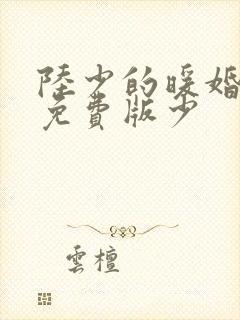 陸少的暖婚
免費版少
雲檀